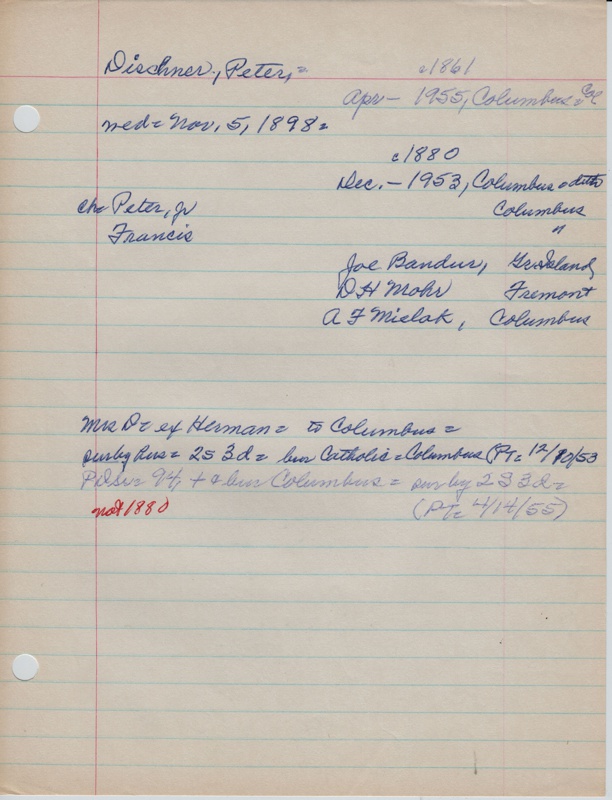 Dischner, Peter, = c1861
Apr - 1955, Columbus = Col
wed = Nov. 5, 1898 =
c1880
Dec. - 1953, Columbus = ditto
ch = Peter, Jr Columbus
Francis "
Joe Bandur, Gr Island
D H Mohr Fremont
A F Mielak, Columbus
Mrs D = ex Herman = to Columbus =
sur by hus = 2s 3d = bur Catholic = Columbus (PT = 12/10/53
PDSr = 94 + & bur Columbus = sur by 2s 3d =
not 1880 (PT = 4/14/55)